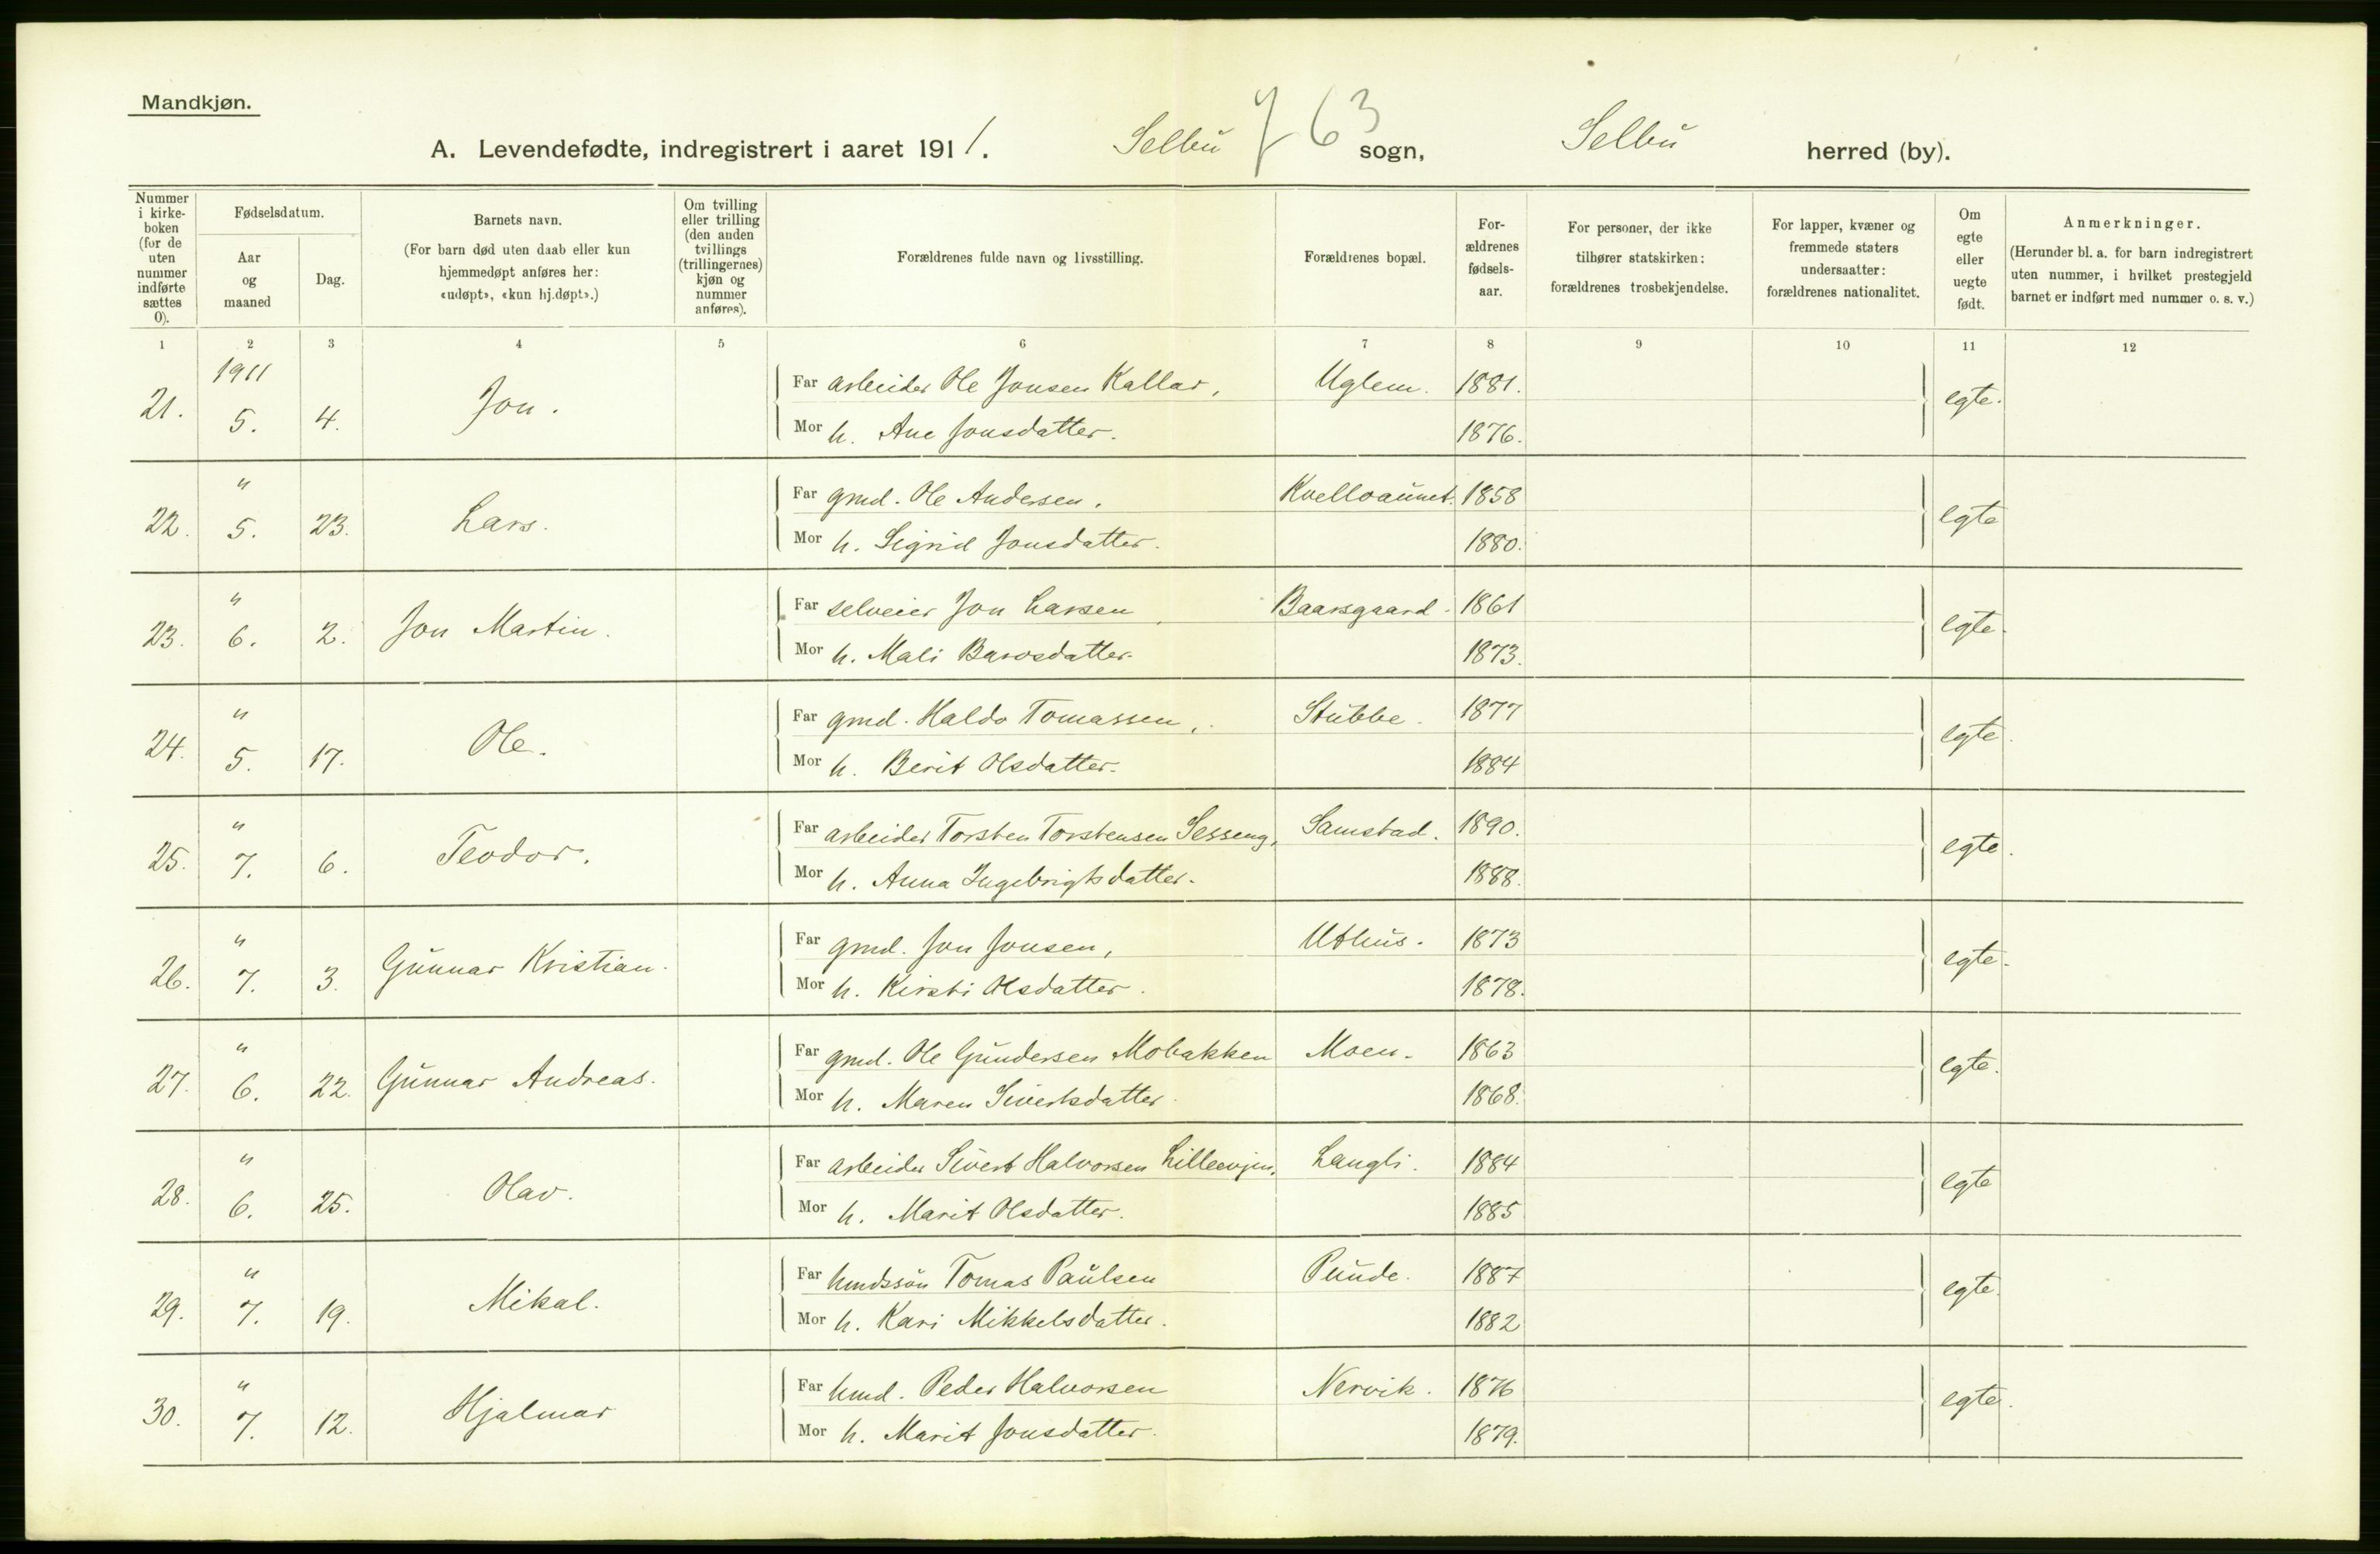 Mandkjøn.
A. Levendefødte, indregistrert i aaret 1911. Selbu 7 63 sogn, Selbu herred (by).
Nummer i kirke-boken (for de uten nummer indførte sættes 0).
Fødselsdatum.
Aar og maaned
Dag.
Barnets navn.
(For barn død uten daab eller kun hjemmedøpt anføres her: «udøpt», «kun hj.døpt».)
Om tvilling eller trilling (den anden tvillings (trillingernes) kjøn og nummer anføres).
Forældrenes fulde navn og livsstilling.
Forældrenes bopæl.
For-ældrenes fødsels-aar.
For personer, der ikke tilhører statskirken: forældrenes trosbekjendelse.
For lapper, kvæner og fremmede staters undersaatter: forældrenes nationalitet.
Om egte eller uegte født.
Anmerkninger.
(Herunder bl. a. for barn indregistrert uten nummer, i hvilket prestegjeld barnet er indført med nummer o. s. v.)
1 2 3 4 5 6 7 8 9 10 11 12
1911
21. 5. 4. Jon. Far arbeider Ole Jonsen Kallar, Uglem. 1881. egte.
Mor h. Ane Jonsdatter. 1876.
22. " 5. 23. Lars. Far gmd. Ole Andersen. Kvelloaunet. 1858 egte
Mor h. Sigrid Jonsdatter. 1880.
23. " 6. 2. Jon Martin. Far selveier Jon Larsen, Baarsgaard. 1861 egte.
Mor h. Mali Barosdatter. 1873.
24. " 5. 17. Ole. Far gmd. Haldo Tomassen, Stubbe. 1877 egte.
Mor h. Berit Olsdatter. 1884
25. " 7. 6. Teodor. Far arbeider Torsten Torstensen Sesseng, Samstad. 1890. egte.
Mor h. Anna Ingebrigtsdatter. 1888.
26. " 7. 3. Gunnar Kristian. Far gmd. Jon Jonsen, Uthus. 1873 egte.
Mor h. Kirsti Olsdatter. 1878.
27. " 6. 22. Gunnar Andreas. Far gmd. Ole Gundersen Mobakken Moen. 1863 egte.
Mor h. Maren Sivertsdatter. 1868.
28. " 6. 25. Olav. Far arbeider Sivert Halvorsen Lilleevjen. Langli. 1884 egte
Mor h. Marit Olsdatter. 1885
29. " 7. 19. Mikal. Far hmdssøn Tomas Paulsen Puude. 1887 egte.
Mor h. Kari Mikkelsdatter. 1882
30. " 7. 12. Hjalmar Far hmd. Peder Halvorsen Nervik. 1876 egte.
Mor h. Marit Jonsdatter. 1879.